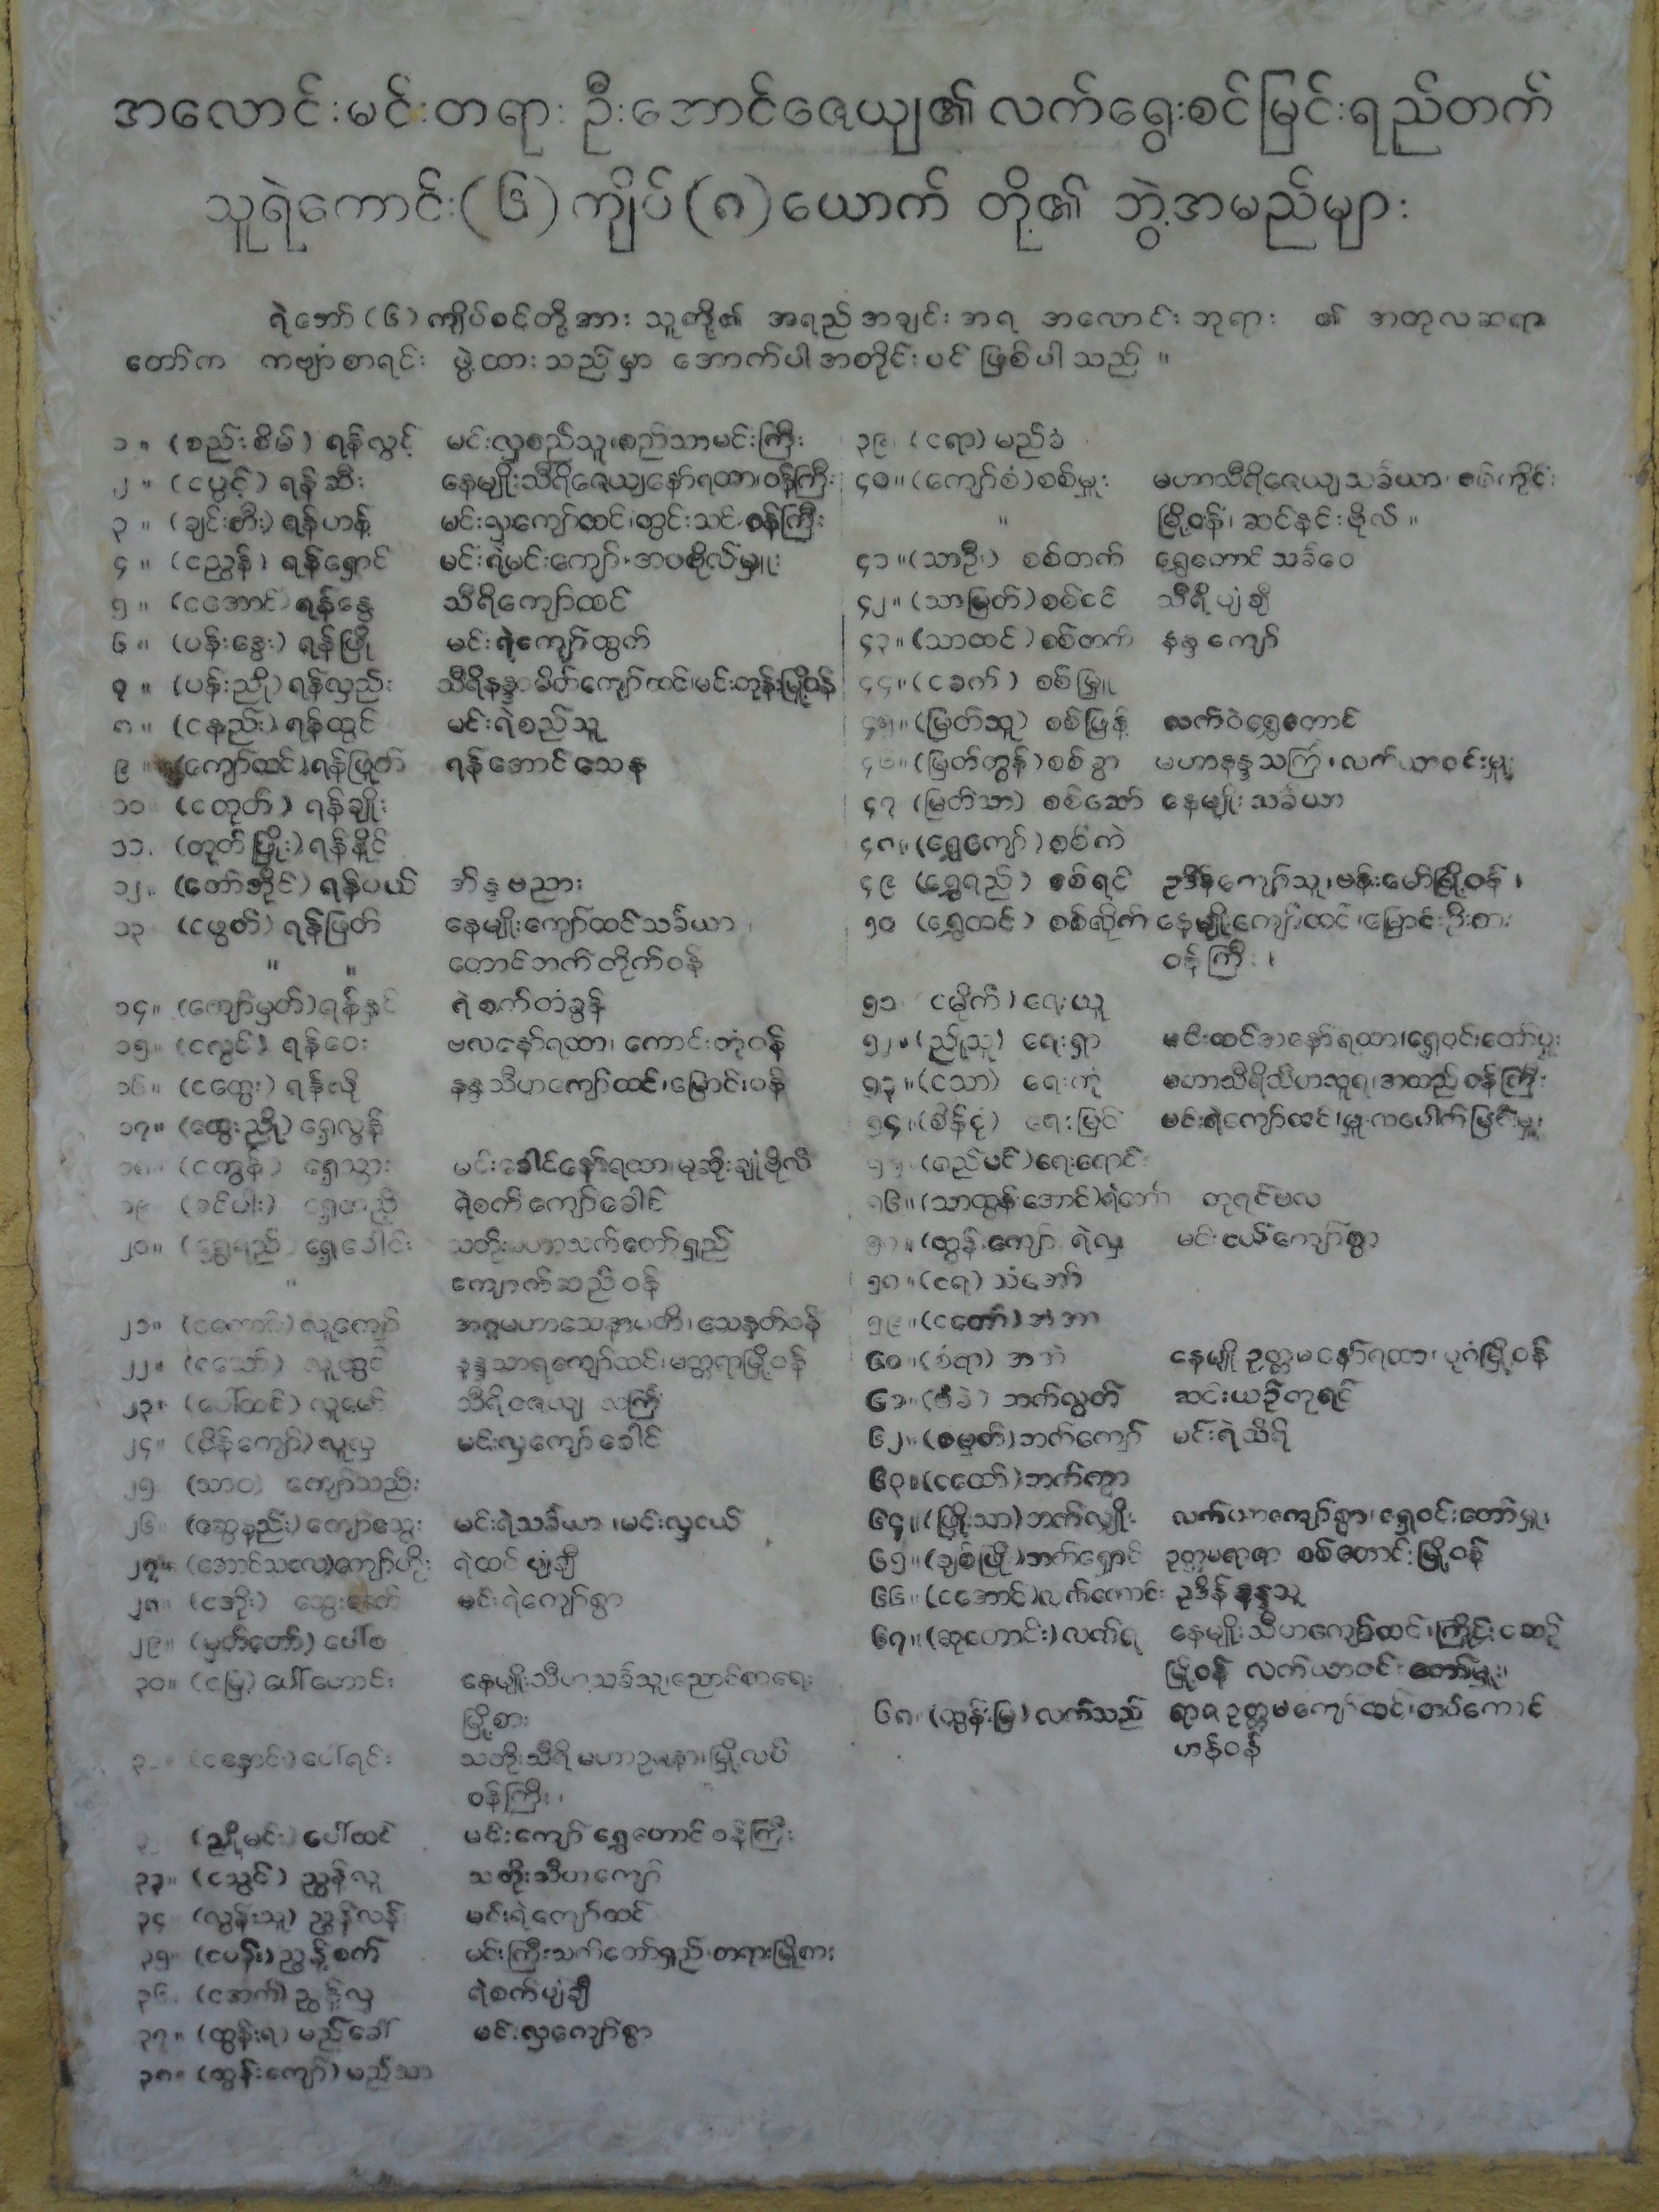 အလောင်းမင်းတရား ဦးအောင်ဇေယျ၏ လက်ရွေးစင်မြင်းရည်တက်
သူရဲကောင်း(၆)ကျိပ်(၈)ယောက် တို့၏ ဘွဲ့အမည်များ
ရဲဘော်(၆)ကျိပ်စင်တို့အား သူတို့၏ အရည်အချင်းအရ အလောင်းဘုရား ၏ အတုလဆရာ
တော်က ကဗျာစာရင်း ဖွဲ့ထားသည်မှာ အောက်ပါအတိုင်းပင် ဖြစ်ပါသည်။
၁။ (စည်းစိမ်) ရန်လွင့် မင်းလှစည်သူ၊စည်သာမင်းကြီး
၂။ (ငပွင့်) ရန်ဆီး နေမျိုးသီရိဇေယျနော်ရထာ၊ဝန်ကြီး
၃။ (ချင်းတီး) ရန်ဟန့် မင်းလှကျော်ထင်၊တွင်းသင်းဝန်ကြီး
၄။ (ငညွန်) ရန်ရှောင် မင်းရဲမင်းကျော်၊ ဗိုလ်မှူး
၅။ (ငအောင်) ရန်နွေ သီရိကျော်ထင်
၆။ (ပန်းနွေး) ရန်ဖြို မင်းရဲကျော်ထွက်
၇။ (ပန်းညို) ရန်လှည်း သီရိနန္ဒ မိတ်ကျော်ထင်၊မင်းတုန်းမြို့ဝန်
၈။ (ငနည်း) ရန်ထွင် မင်းရဲစည်သူ
၉။ (ကျော်ထင်) ရန်ဖြုတ် ရန်အောင်သေန
၁၀ (ငတုတ်) ရန်ချိုး
၁၁. (တုတ်ဖြိုး) ရန်နှိုင်
၁၂။ (တော်ဘိုင်) ရန်ပယ် ဘိန္ဒဗညား
၁၃ (ငဖွတ်) ရန်ဖြတ် နေမျိုးကျော်ထင်သင်္ခယာ၊
" " တောင်ဘက်တိုက်ဝန်
၁၄။ (ကျော်မှတ်) ရန်နှင် ရဲစက်တံခွန်
၁၅။ (ငလွင်) ရန်ဝေး ဗလနော်ရထာ၊ ကောင်းတုံဝန်
၁၆။ (ငထွေး) ရန်လို နန္ဒသီဟကျော်ထင်၊မြောင်းဝန်
၁၇။ (ထွေးညို) ရှေ့လွန်
၁၈။ (ငထွန်) ရှေ့သွား မင်းခေါင်နော်ရထာ၊မုဆိုးချုံဗိုလ်
၁၉ ရဲစက်ကျော်ခေါင်
၂၀။ (ရွှေရည်) ရှေ့ခေါင်း သတိုးမဟာသက်တော်ရှည်
" ကျောက်ဆည်ဝန်
၂၁။ လူကျော် အဂ္ဂမဟာသေနာပတိ၊သေနတ်ဝန်
၂၂။ လူထွင် နန္ဒသာရကျော်ထင်၊မတ္တရာမြို့ဝန်
၂၃။ (ပေါ်ထင်) လူမော် သီရိဇေယျ သင်္ကြံ
၂၄။ (စိန်ကျော်) လူလှ မင်းလှကျော်ခေါင်
၂၅ (သာဝ) ကျော်သည်း
၂၆။ (ဆွေနည်း) ကျော်သွေး မင်းရဲသင်္ခယာ၊မင်းလှငယ်
၂၇။ (အောင်သလေ) ကျော်ဟိုး ရဲထင်ပျံချီ
၂၈။ (ငအိုး) သွေးသောက် မင်းရဲကျော်စွာ
၂၉။ (မှတ်တော်) ပေါ်စ
၃၀။ (ငမြ) ပေါ်ဟောင်း နေမျိုးသီဟသင်္ခသူ၊ညောင်စာရေး
မြို့စား
(ငနှောင်း) ပေါ်ရင်း သတိုးသီရိမဟာဥဇနာ၊မြို့လပ်
ဝန်ကြီး၊
(ညိုမင်း) ပေါ်ထင် မင်းကျော် ရွှေတောင်ဝန်ကြီး
၃၃။ (ငသွင်) ညွန့်လူ သတိုးသီဟကျော်
၃၄ (လွန်းသူ) ညွန့်လန် မင်းရဲကျော်ထင်
၃၅။ (ငပန်း) ညွန့်စက် မင်းကြီးသက်တော်ရှည်၊တရားမြို့စား
၃၆. (ငအက်) ညွန့်လှ ရဲစက်ပျံချီ
၃၇။ (ထွန်းရ) မည်ခေါ် မင်းလှကျော်စွာ
၃၈။ (ထွန်းကျော်) မည်သာ
၃၉ (ငရာ) မည်ခံ
၄၀။ (ကျော်စံ) စစ်မှူး မဟာသီရိဇေယျသင်္ခယာ၊စစ်ကိုင်း
" မြို့ဝန်၊ ဆင်နင်းဗိုလ်။
၄၁။ (သာဦး) စစ်တက် ရွှေတောင်သင်္ခဝေ
၄၂။ (သာမြတ်) စစ်ငင် သီရိပျံချီ
၄၃။ (သာထင်) စစ်တက် နန္ဒကျော်
၄၄။ (ငခက်) စစ်မြှူ
၄၅။ (မြတ်သူ) စစ်ဖြန့် လက်ဝဲရွှေတောင်
၄၆။ (မြတ်ထွန်) စစ်ခွာ မဟာနန္ဒသင်္ကြံ၊ လက်ယာဝင်းမှူး
၄၇ (မြတ်သာ) စစ်ဆော် နေမျိုးသင်္ခယာ
၄၈။ (ရွှေကျော်) စစ်ကဲ
၄၉ (ရွှေရည်) စစ်ရင် ဥဒိန်ကျော်သူ၊ဗန်းမော်မြို့ဝန်၊
၅၀ (ရွှေထင်) စစ်ဆိုက် နေမျိုးကျော်ထင်၊မြောင်းဦးစား
ဝန်ကြီး၊
၅၁ (ငမိုက်) ရေးယူ
၅၂။ (ညိုသူ) ရေးရှာ မင်းထင်အနော်ရထာ၊ရှေ့ဝင်းတော်မှူး
၅၃။ (ငသာ) ရေးကုံ မဟာသီရိသီဟသူရ၊အထည်ဝန်ကြီး
၅၄။ (စိန်ငုံ) ရေးမြင် မင်းရဲကျော်ထင်၊မှူးကပေါက်မြင်းမှူး
(စည်မင်) ရေးရောင်
၅၆။ (သာထွန်းအောင်) ရဲဘော် တုရင်ဗလ
(ထွန်းကျော်) ရဲလှ မင်းငယ်ကျော်စွာ
၅၈။ (ငရ) သံဘော်
၅၉။ (ငတော်) အံအာ
၆၀။ (စံရာ) နေမျိုးဥတ္တမနော်ရထာ၊ ပုဂံမြို့ဝန်
၆၁။ ဘက်လွတ် ဆင်းယဉ်တုရင်
၆၂။ (စမှတ်) ဘက်ကျော် မင်းရဲသီရိ
၆၃။ (ငထော်) ဘက်ကွာ
၆၄။ (ဖြိုးသာ) ဘက်လျှိုး လက်ယာကျော်စွာ၊ ရှေ့ဝင်းတော်မှူး
၆၅။ (ချစ်ဖြို) ဘက်ရှောင် ဥတ္တမရာဇာ စစ်တောင်းမြို့ဝန်
၆၆။ (ငအောင်) လက်ကောင်း ဥဒိန်နန္ဒသူ
၆၇။ (ဆုတောင်း) လက်ရ နေမျိုးသီဟကျော်ထင်၊ကြိုင်းငဆည်
မြို့ဝန် လက်ယာဝင်းတော်မှူး၊
၆၈။ (ထွန်းမြ) လက်သည် ရာဇဥတ္တမကျော်ထင်၊တပ်ကောင်
ဟန်ဝန်